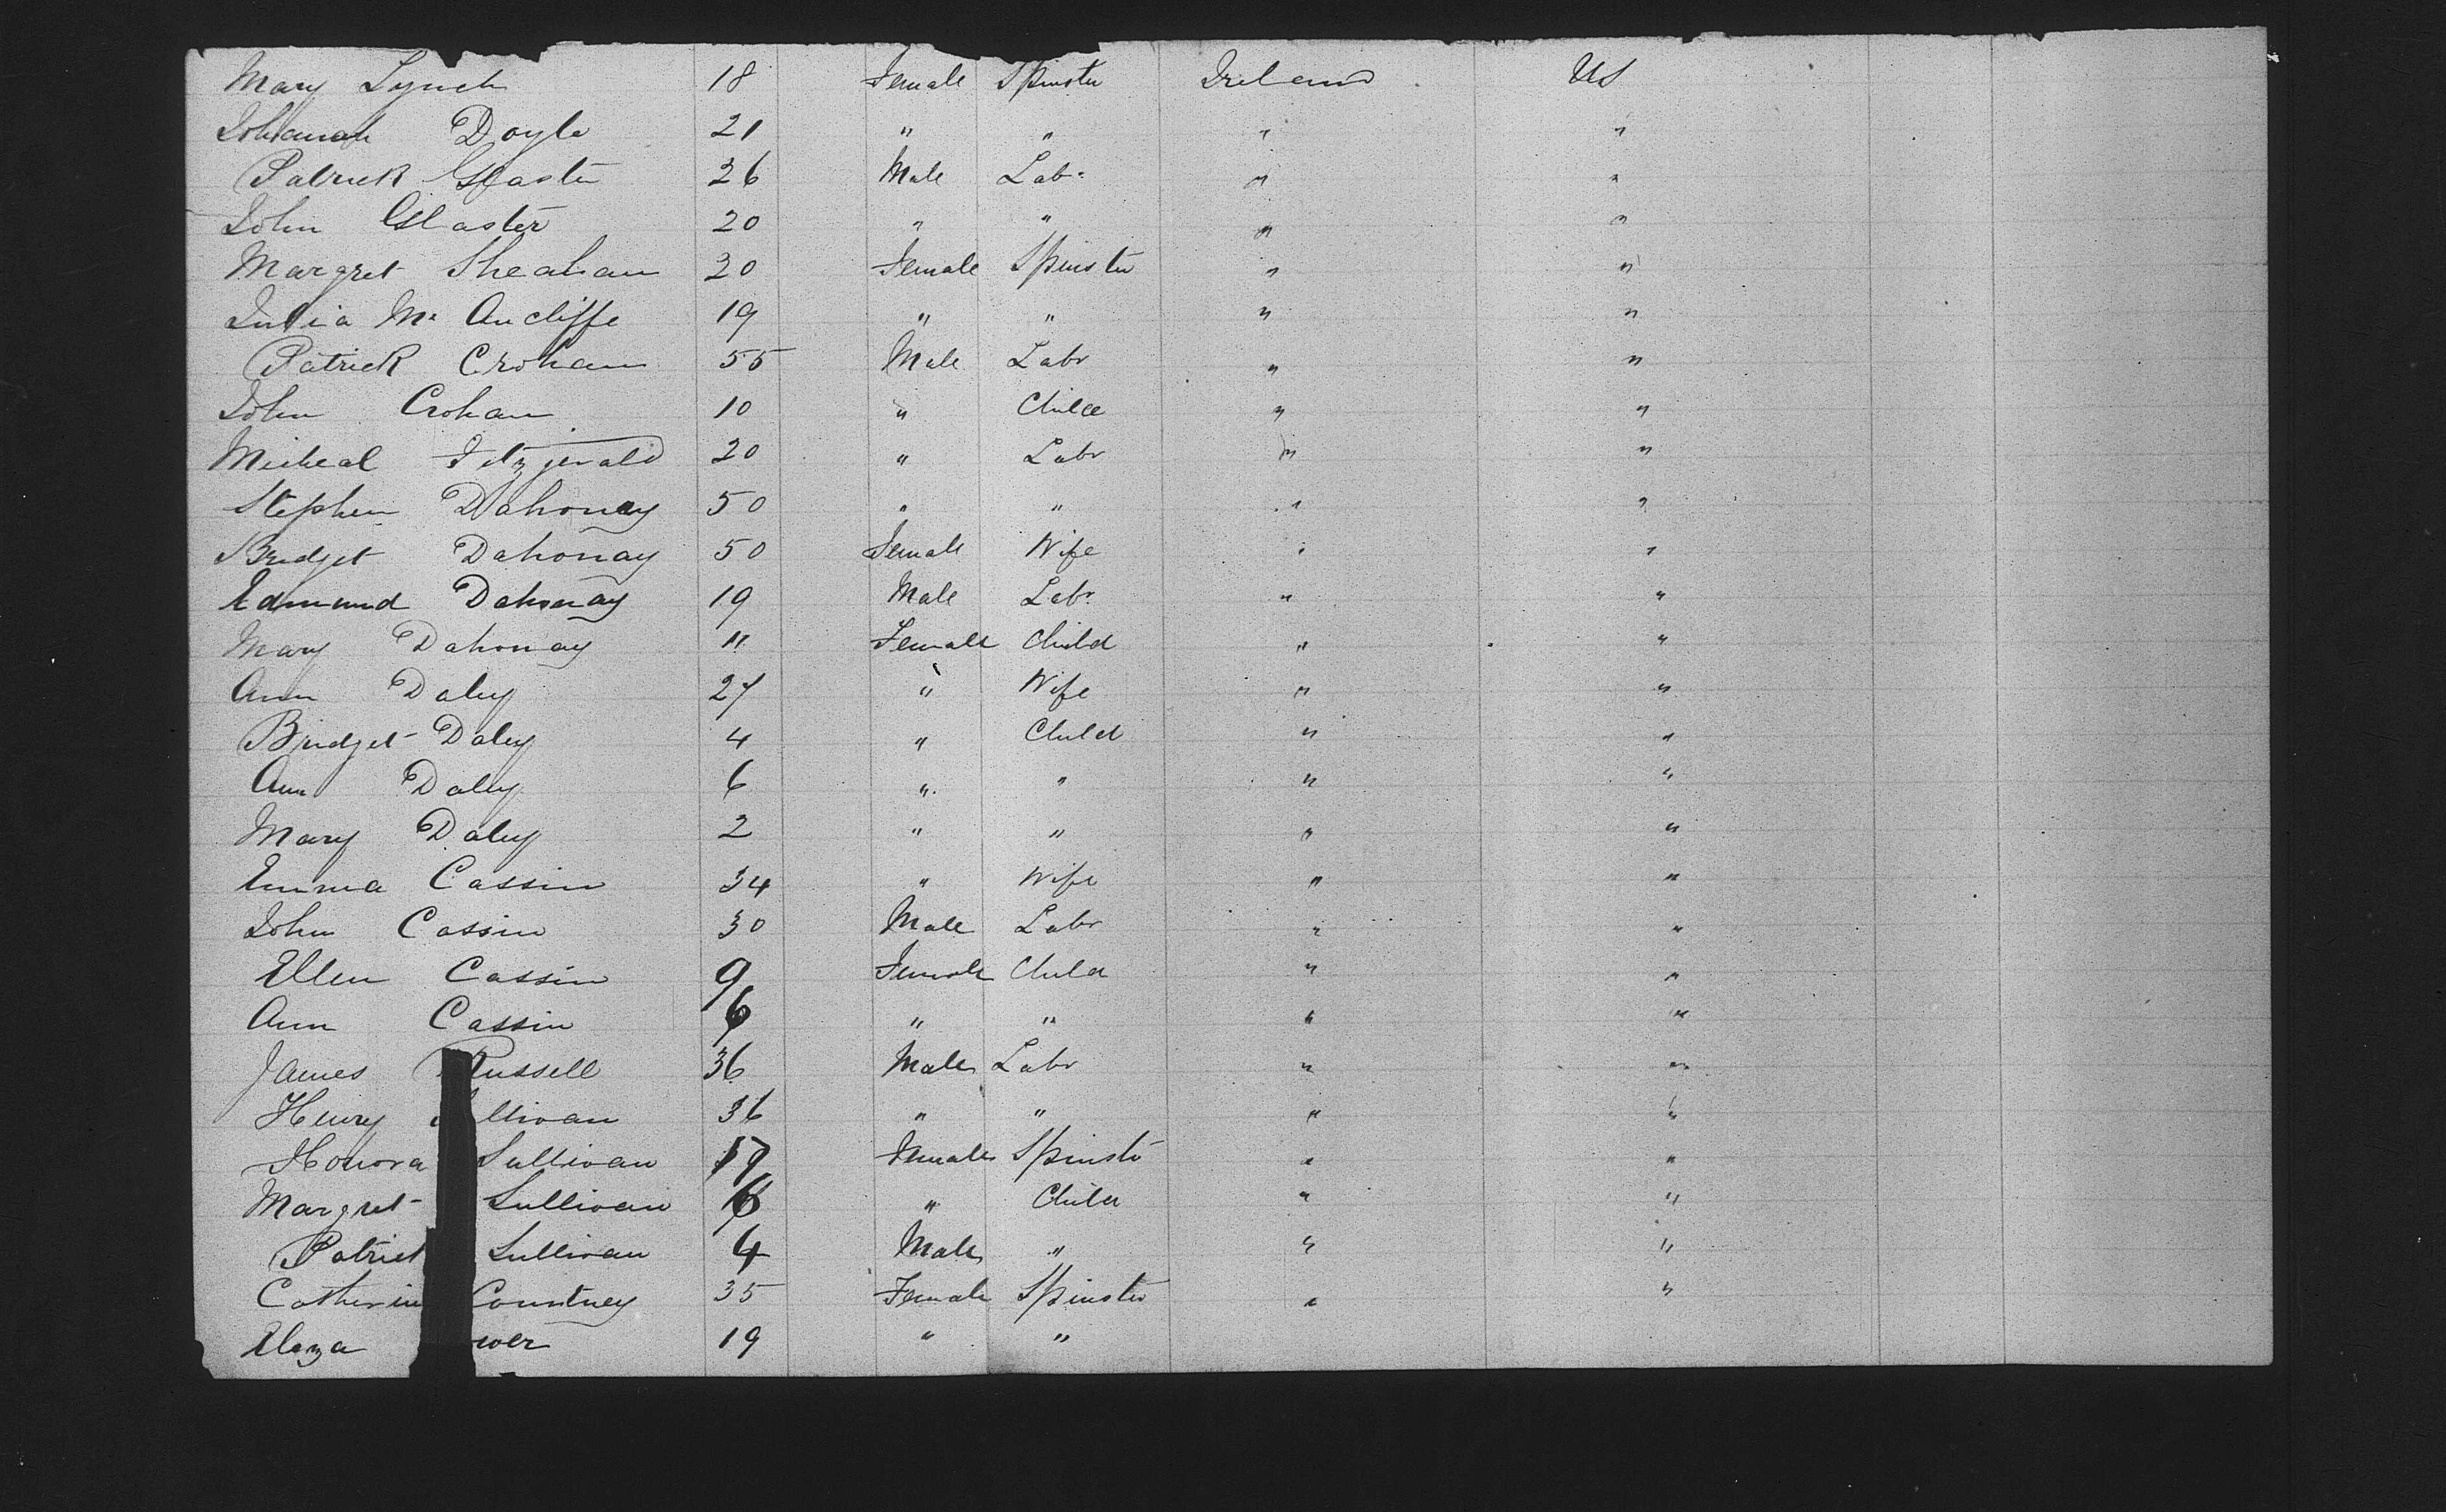 Mary Lynch 18 Female Spinster Ireland US
Johanah Doyle 21 " " " "
Patrick Glaster 26 Male Labr " "
John Glaster 20 " " " "
Margret Sheahan 20 Female Spinster " "
Julia Mc Aucliffe 19 " " " "
Patrick Crohan 55 Male Labr " "
John Crohan 10 " Child " "
Micheal Fitzgerald 20 " Labr " "
Stephen Dahonay 50 " " " "
Bridget Dahonay 50 Female Wife " "
Edmund Dahonay 19 Male Labr " "
Mary Dahonay 11 Female Child " "
Ann Daley 27 " Wife " "
Bridget Daley 4 " Child " "
Ann Daley 6 " " " "
Mary Daley 2 " " " "
Emma Cassin 34 " Wife " "
John Cassin 30 Male Labr " "
Ellen Cassin 9 Female Child " "
Ann Cassin 6 " " " "
James Russell 36 Male Labr " "
Henry llivan 36 " " " "
Honora Sullivan Female Spinstr " "
Margret Sullivan 6 " Child " "
Patrick Sullivan 4 Male " " "
Catherin Courtney 35 Female Spinster " "
Eliza wer 19 " "